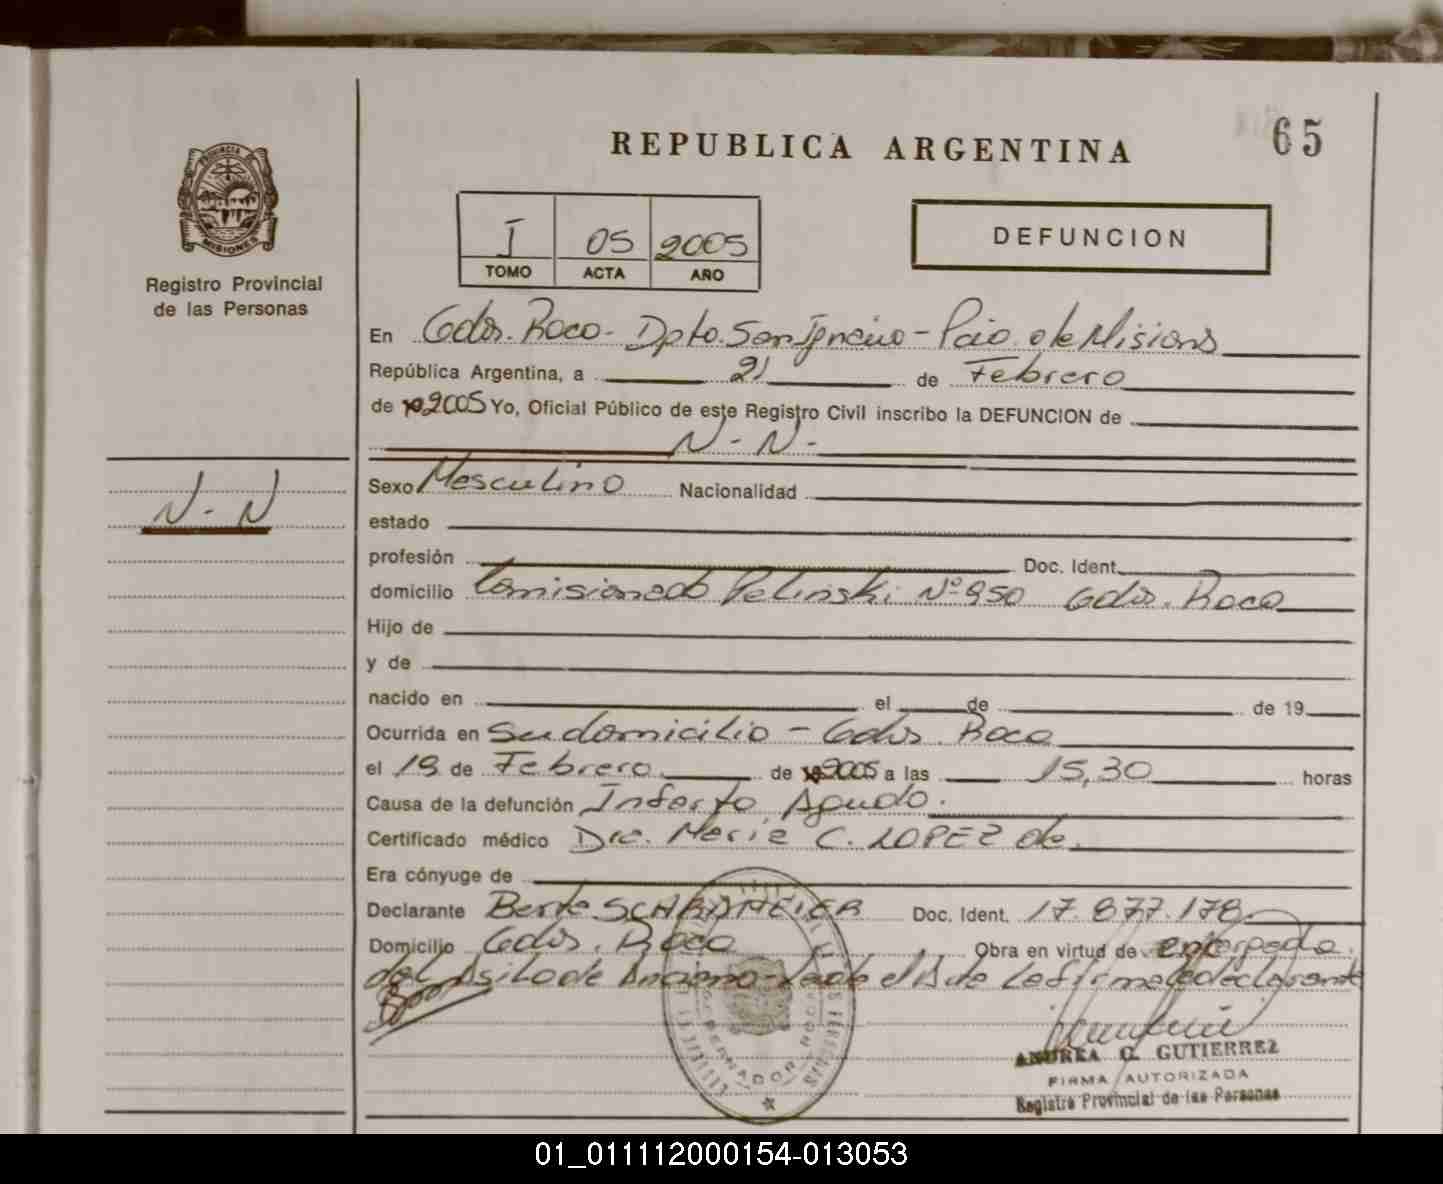 REPUBLICA ARGENTINA
65
PROVINCIA DE
MISIONES
Registro Provincial
de las Personas
I 05 2005
TOMO ACTA AÑO
DEFUNCION
En Gdor. Roca - Dpto. San Ignacio - Pcia. de Misiones
República Argentina, a 21 de Febrero
de 2005 Yo, Oficial Público de este Registro Civil inscribo la DEFUNCION de
N - N -
N - N
Sexo Masculino Nacionalidad
estado
profesión Doc. Ident.
domicilio Comisionado Pelinski Nº 950 Gdor. Roca
Hijo de
y de
nacido en el de de 19
Ocurrida en Su domicilio - Gdor. Roca
el 19 de Febrero de 2005 a las 15,30 horas
Causa de la defunción Infarto Agudo.
Certificado médico Dra. Maria C. LOPEZ de
Era cónyuge de
Declarante Berta Doc. Ident. 17.877.178
Domicilio Gdor. Roca Obra en virtud de encargada
del Asilo de la firma la declarante
GOBERNADOR ROCA
ANDREA C. GUTIERREZ
FIRMA AUTORIZADA
Registro Provincial de las Personas
01_011112000154-013053